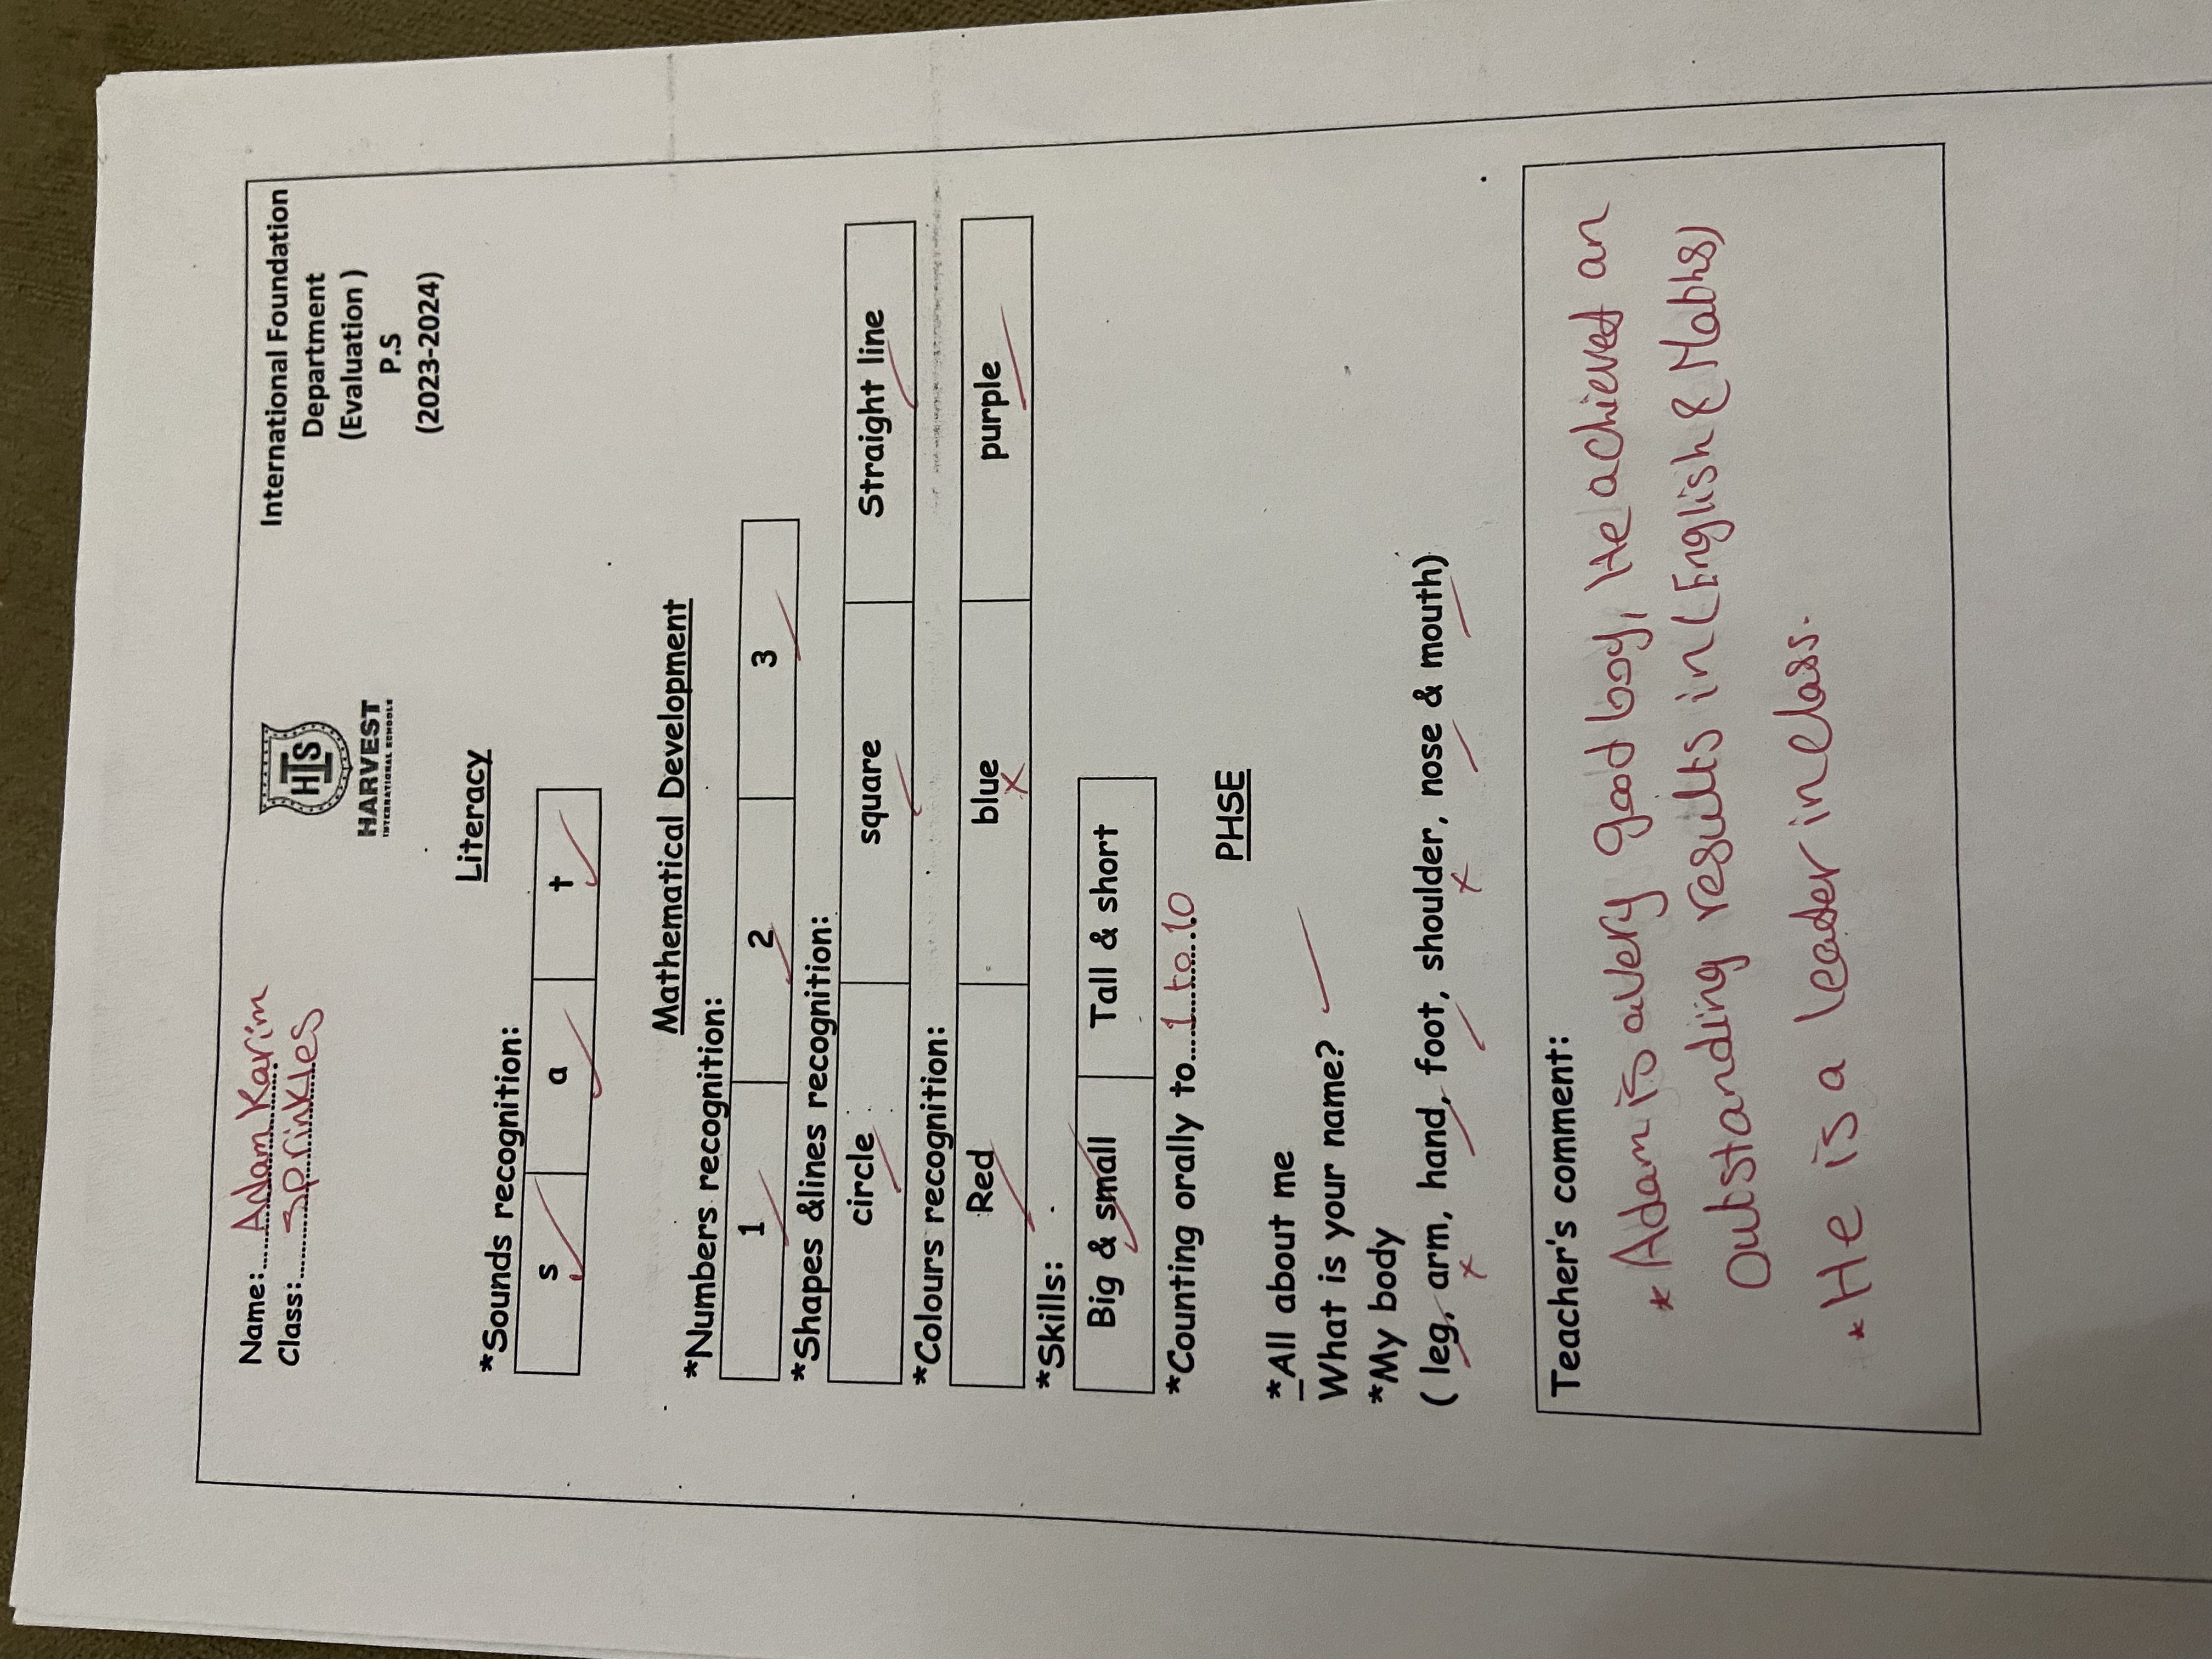 Name:........Adam Karim
Class:........Sprinkles
HIS
HARVEST
INTERNATIONAL SCHOOLS
International Foundation
Department
(Evaluation )
P.S
(2023-2024)
Literacy
*Sounds recognition:
s a t
Mathematical Development
*Numbers recognition:
1 2 3
*Shapes &lines recognition:
circle square Straight line
*Colours recognition:
Red blue purple
*Skills:
Big & small Tall & short
*Counting orally to......1 to 10
PHSE
*All about me
What is your name?
*My body
( leg, arm, hand, foot, shoulder, nose & mouth)
Teacher's comment:
* Adam is a very good boy, He achieved an
Outstanding results in (English & Maths)
* He is a leader in class.